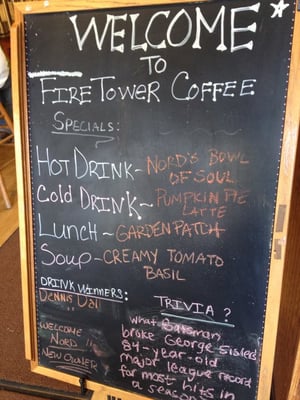 WELCOME
TO
FIRETOWER COFFEE
SPECIALS:
HOT DRINK~ NORD'S BOWL
OF SOUL
COLD DRINK~ PUMPKIN PIE
LATTE
LUNCH~ GARDEN PATCH
SOUP~ CREAMY TOMATO
BASIL
DRINK WINNERS:
DENNIS
WELCOME
NORD !!
NEW OWNER
TRIVIA?
what Batsman
broke George Sisler's
84-year-old
major league record
for most hits in
a season